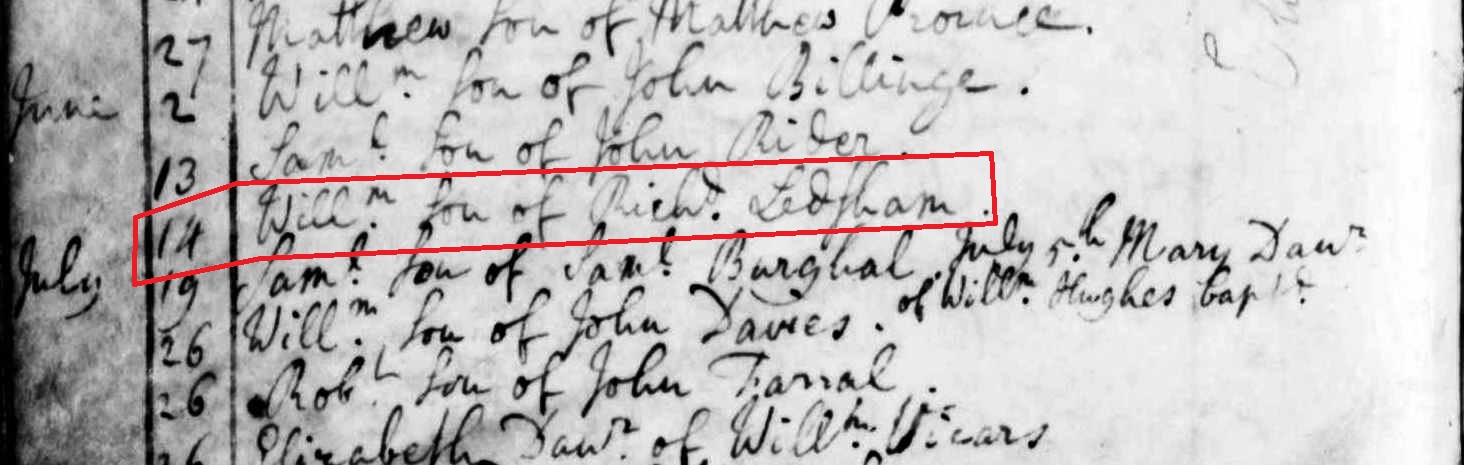 27 Matthew Son of Matthew
June 2 Will.m Son of John Billinge.
13 Sam.l Son of John Rider.
14 Will.m Son of Rich.d Ledsham.
July 19 Sam.l Son of Sam.l Burghal. July 5.th Mary Dau.r
26 Will.m Son of John Davies. of Will.m Hughes bap.td
26 Rob.t Son of John Farral.
26 Elizabeth Dau.r of Will.m Vicars